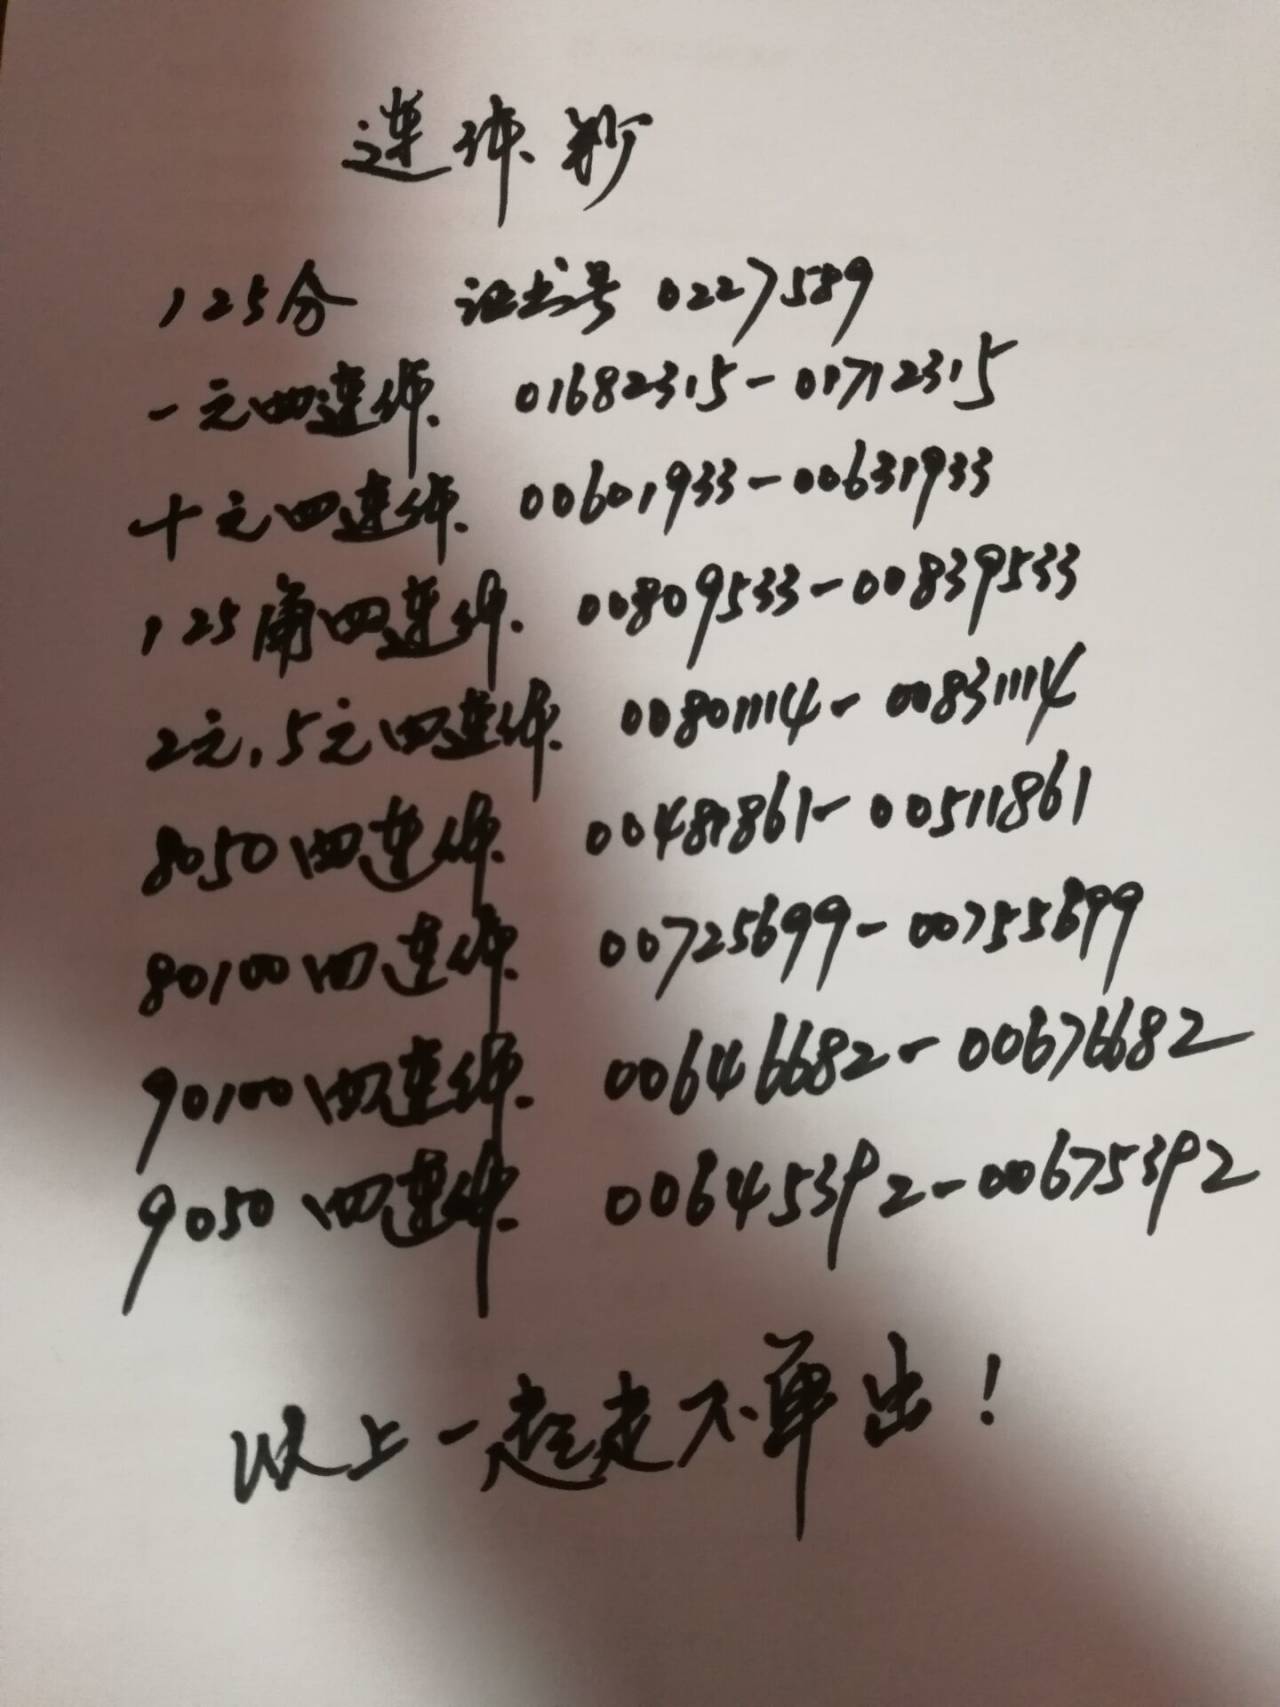 连体钞
125分 证书号 0227589
一元四连体 01682315-01712315
十元四连体 00601933-00631933
125角四连体 00809533-00839533
2元,5元四连体 00801114-00831114
8050四连体 00481861-00511861
80100四连体 00725699-00755699
90100四连体 00646682-00676682
9050四连体 00645392-00675392
以上一起走不单出!